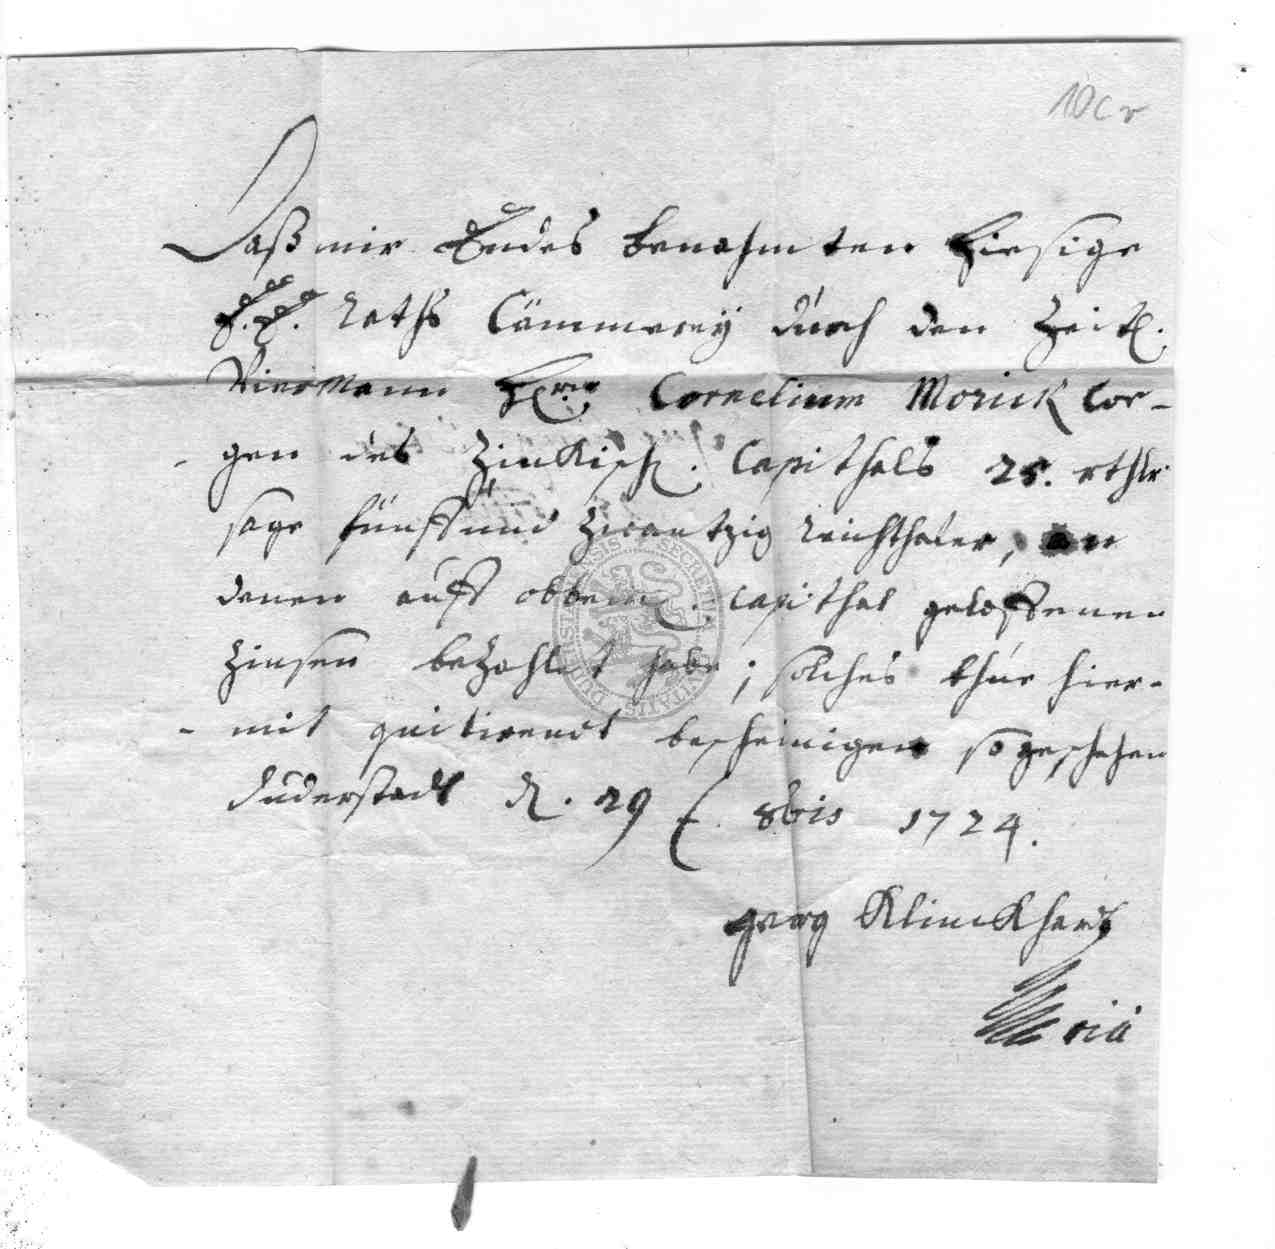 10 c r
Daß mir Endes benahmten hiesige
H. H. Raths Cämmereÿ durch den Zeitl.
Viermann Hrn. Cornelium Morick wor-
gen des Zinckisch. Capithals 25. rthlr
sage fünff und zwantzig reichsthaler, an
denen auff obbem. Capithal geloffenen
Zinsen bezahlet habe; solches thue hier-
mit quitirendt bescheinigen so geschehen
Duderstadt d. 29 8bris 1724.
Georg Klinckhardt
SECRETUM CIVITATIS DUDERSTADENSIS